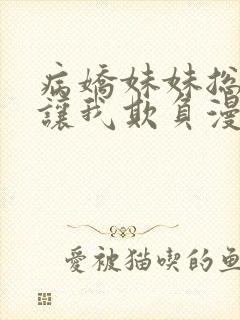 病嬌妹妹总
讓我欺負漫
愛被猫喫的魚